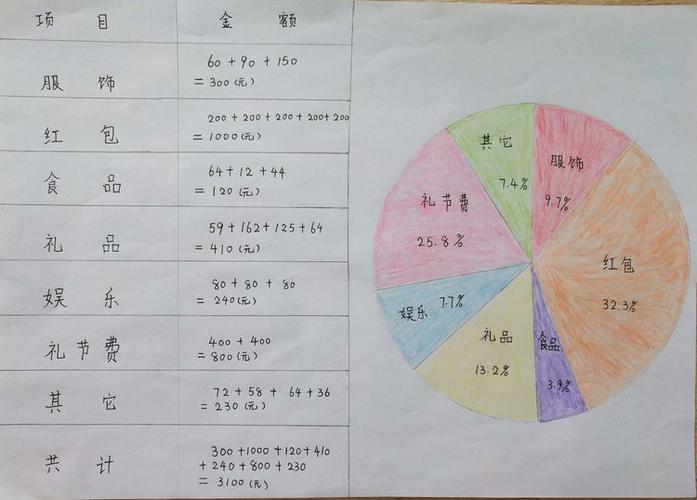 项目 金额
服饰 60+90+150
=300(元)
红包 200+200+200+200+200
=1000(元)
食品 64+12+44
=120(元)
礼品 59+162+125+64
=410(元)
娱乐 80+80+80
=240(元)
礼节费 400+400
=800(元)
其它 72+58+64+36
=230(元)
共计 300+1000+120+410
+240+800+230
=3100(元)
其它
7.4%
服饰
9.7%
礼节费
25.8%
红包
32.3%
娱乐 7.7%
礼品
13.2%
食品
3.9%